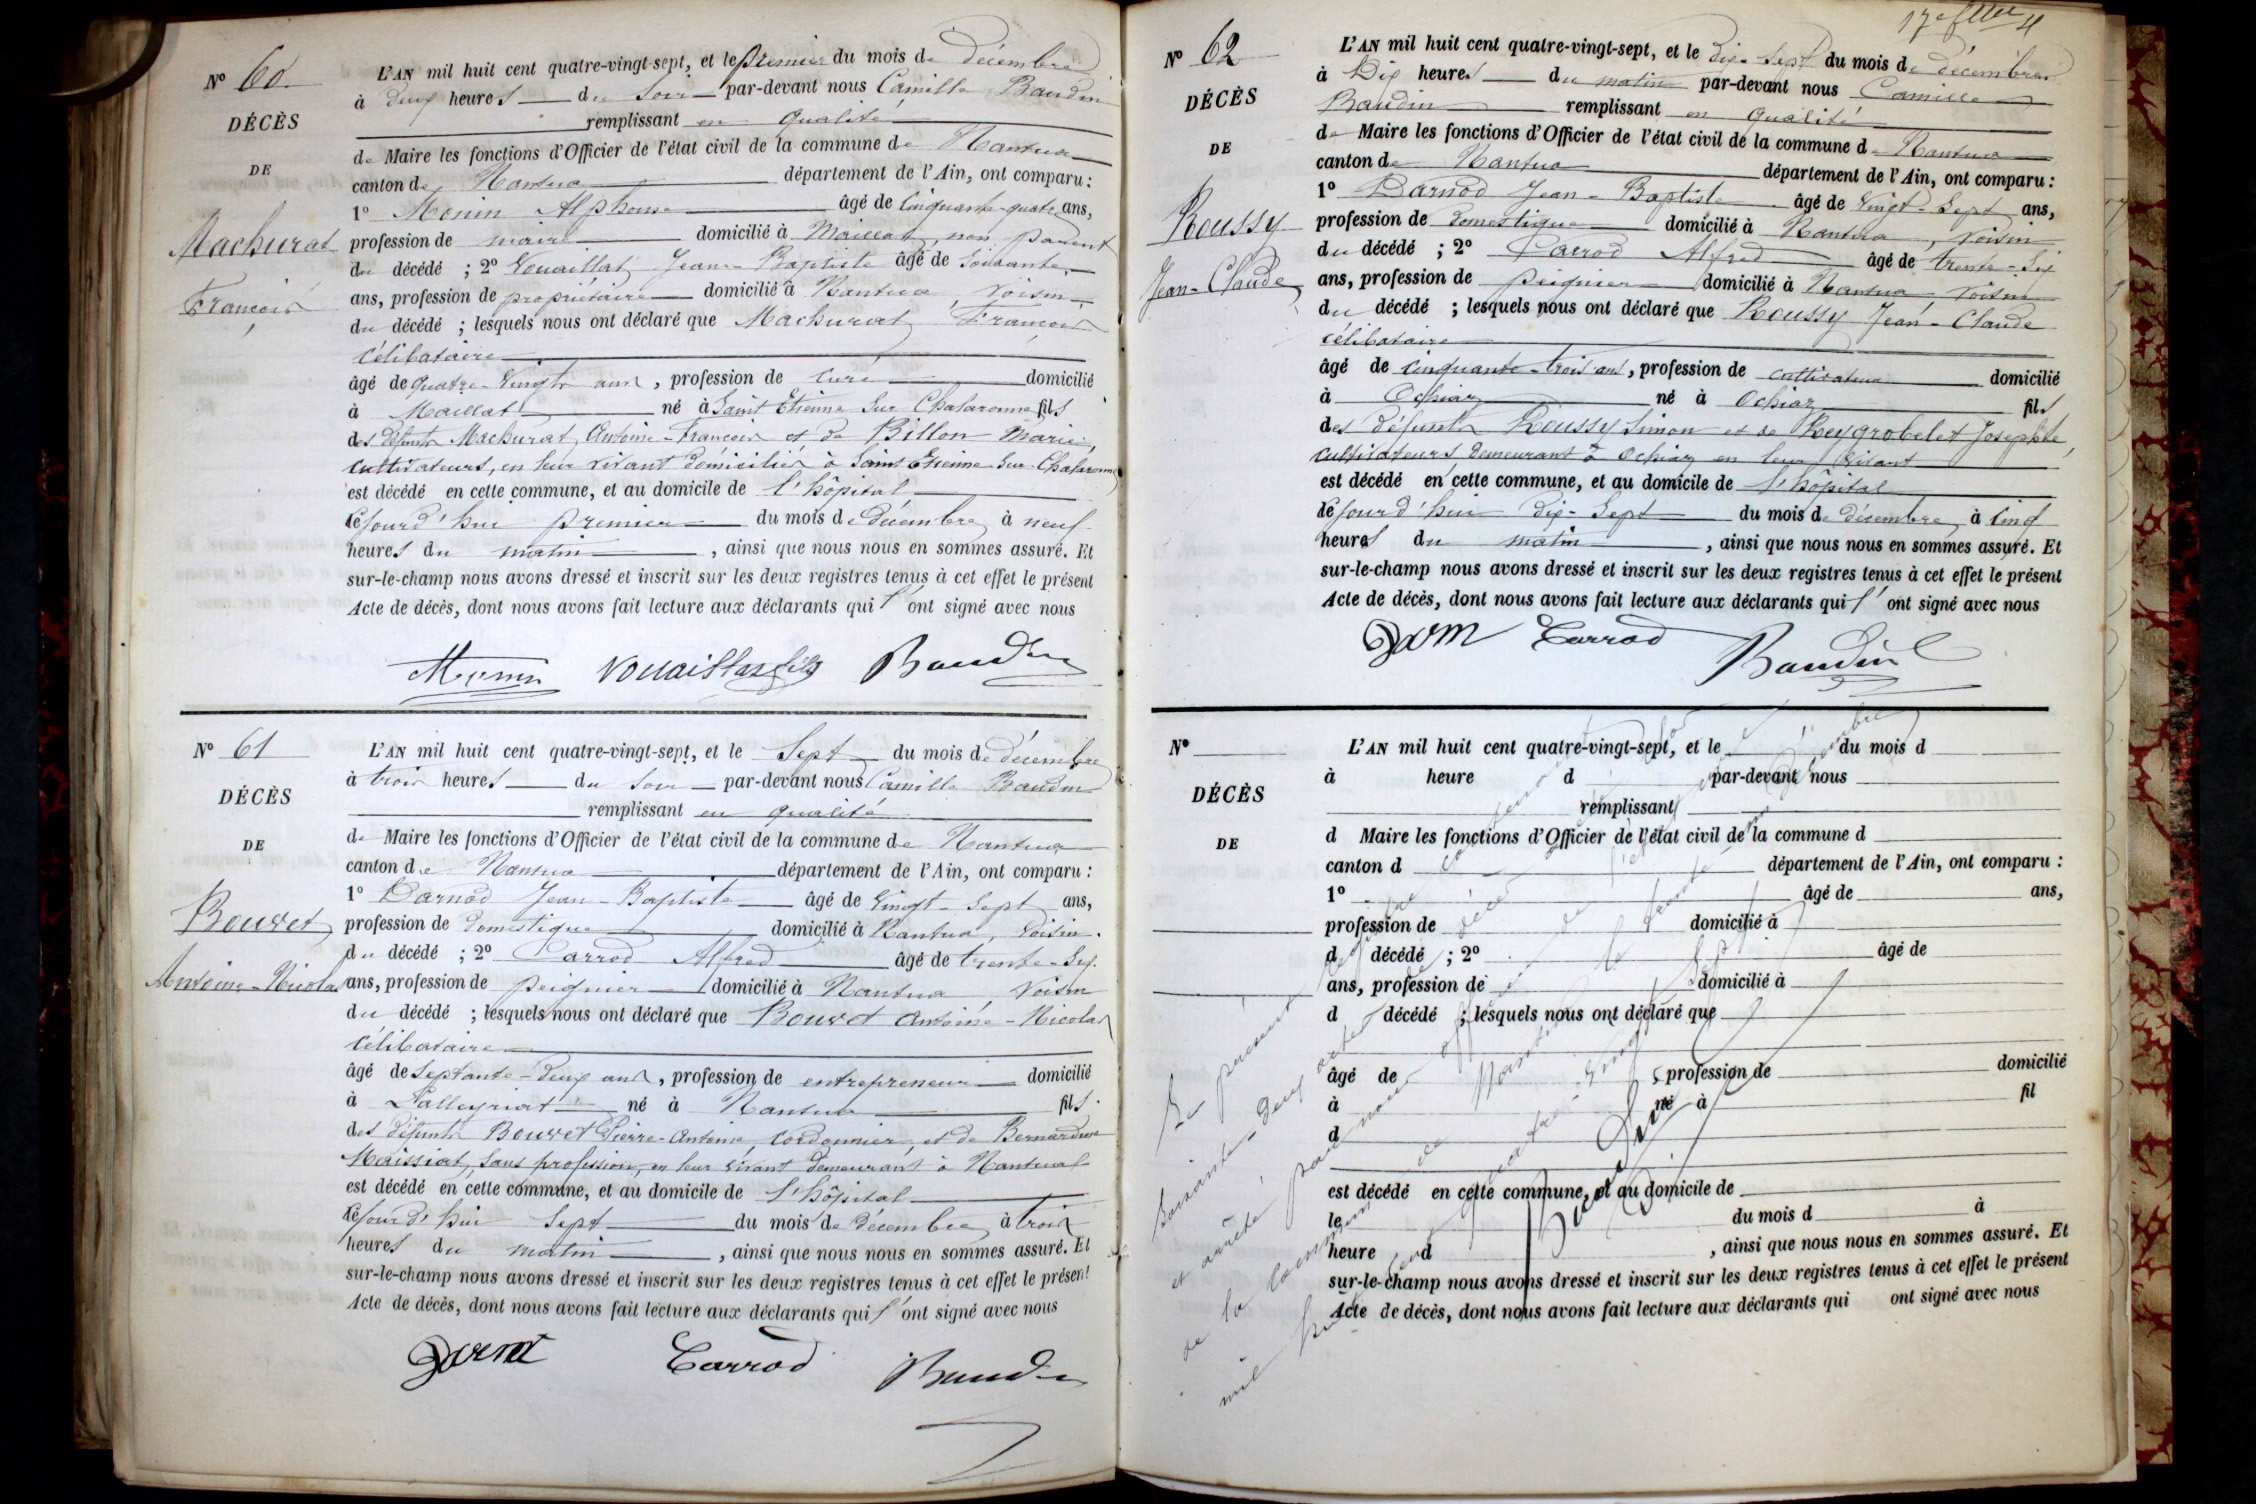 Nº 60.
DÉCÈS
DE
Machurat
François
L'AN mil huit cent quatre-vingt-sept, et le premier du mois de décembre
à deux heures du soir par-devant nous Camille Baudin
remplissant en qualité
de Maire les fonctions d'Officier de l'état civil de la commune de Nantua
canton de Nantua département de l'Ain, ont comparu :
1º Monin Alphonse âgé de cinquante-quatre ans,
profession de maire domicilié à Maillat, non parent
du décédé ; 2º Vouaillat Jean-Baptiste âgé de soixante
ans, profession de propriétaire domicilié à Nantua, voisin
du décédé ; lesquels nous ont déclaré que Machurat François
célibataire
âgé de quatre-vingts ans, profession de curé domicilié
à Maillat né à Saint Etienne sur Chalaronne fils
des défunts Machurat Antoine-François et de Billon Marie,
cultivateurs, en leur vivant domiciliés à Saint Etienne-sur-Chalaronne
est décédé en cette commune, et au domicile de l'hôpital
le jourd'hui premier du mois de décembre à neuf
heures du matin, ainsi que nous nous en sommes assuré. Et
sur-le-champ nous avons dressé et inscrit sur les deux registres tenus à cet effet le présent
Acte de décès, dont nous avons fait lecture aux déclarants qui l'ont signé avec nous
Monin Vouaillat fils Baudin
Nº 61
DÉCÈS
DE
Bouvet
Antoine-Nicolas
L'AN mil huit cent quatre-vingt-sept, et le sept du mois de décembre
à trois heures du soir par-devant nous Camille Baudin
remplissant en qualité
de Maire les fonctions d'Officier de l'état civil de la commune de Nantua
canton de Nantua département de l'Ain, ont comparu :
1º Darnod Jean-Baptiste âgé de vingt-sept ans,
profession de domestique domicilié à Nantua, voisin
du décédé ; 2º Carrod Alfred âgé de trente-six
ans, profession de peignier domicilié à Nantua, voisin
du décédé ; lesquels nous ont déclaré que Bouvet Antoine-Nicolas
célibataire
âgé de septante-deux ans, profession de entrepreneur domicilié
à Lalleyriat né à Nantua fils
des défunts Bouvet Pierre-Antoine, cordonnier, et de Bernardine
Maissiat, sans profession, en leur vivant demeurant à Nantua
est décédé en cette commune, et au domicile de l'hôpital
le jourd'hui sept du mois de décembre à trois
heures du matin, ainsi que nous nous en sommes assuré. Et
sur-le-champ nous avons dressé et inscrit sur les deux registres tenus à cet effet le présent
Acte de décès, dont nous avons fait lecture aux déclarants qui l'ont signé avec nous
Darnod Carrod Baudin
17e
Nº 62
DÉCÈS
DE
Roussy
Jean-Claude
L'AN mil huit cent quatre-vingt-sept, et le dix-sept du mois de décembre
à Dix heures du matin par-devant nous Camille
Baudin remplissant en qualité
de Maire les fonctions d'Officier de l'état civil de la commune de Nantua
canton de Nantua département de l'Ain, ont comparu :
1º Darnod Jean-Baptiste âgé de vingt-sept ans,
profession de domestique domicilié à Nantua, voisin
du décédé ; 2º Carrod Alfred âgé de trente-six
ans, profession de peignier domicilié à Nantua, voisin
du décédé ; lesquels nous ont déclaré que Roussy Jean-Claude
célibataire
âgé de cinquante-trois ans, profession de cultivateur domicilié
à Ochiaz né à Ochiaz fils
des défunts Roussy Simon et de Reygrobelet Josephte,
cultivateurs demeurant à Ochiaz en leur vivant
est décédé en cette commune, et au domicile de l'hôpital
le jourd'hui dix-sept du mois de décembre à cinq
heures du matin, ainsi que nous nous en sommes assuré. Et
sur-le-champ nous avons dressé et inscrit sur les deux registres tenus à cet effet le présent
Acte de décès, dont nous avons fait lecture aux déclarants qui l'ont signé avec nous
Carrod Baudin
Nº
DÉCÈS
DE
L'AN mil huit cent quatre-vingt-sept, et le du mois d
à heure d par-devant nous
remplissant
d Maire les fonctions d'Officier de l'état civil de la commune d
canton d département de l'Ain, ont comparu :
1º âgé de ans,
profession de domicilié à
d décédé ; 2º âgé de
ans, profession de domicilié à
d décédé ; lesquels nous ont déclaré que
âgé de , profession de domicilié
à né à fil
d
est décédé en cette commune, et au domicile de
le du mois d à
heure d , ainsi que nous nous en sommes assuré. Et
sur-le-champ nous avons dressé et inscrit sur les deux registres tenus à cet effet le présent
Acte de décès, dont nous avons fait lecture aux déclarants qui ont signé avec nous
Le présent registre contenant
soixante-deux actes de décès a été clos
et arrêté par nous officier de l'état civil
de la commune de Nantua le trente un Décembre
mil huit cent quatre-vingt sept